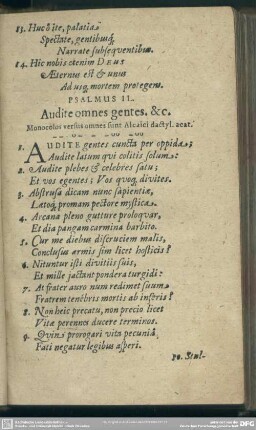 13. Huc ô ite, palatia
Spectate, gentibusq́;
Narrate subsequentibus.
14. Hic nobis etenim DEUS
Æternus est & unus
Ad usq; mortem protegens.
PSALMUS II..
Audite omnes gentes. &c.
Monocolos versus omnes sunt Alcaici dactyl. acat.
1. AUDITE gentes cuncta per oppida;
Audite latum qui colitis solum:
2. Audite plebes & celebres satu;
Et vos egentes; Vos quoq; divites.
3. Abstrusa dicam nunc sapientiæ,
Latoq́; promam pectore mystica.
4. Arcana pleno gutture proloquar,
Et dia pangam carmina barbito.
5. Cur me diebus discruciem malis,
Conclusus armis sim licet hosticis?
6. Nituntur isti divitiis suis,
Et mille jactant pondera turgidi:
7. At frater auro num redimet suum
Fratrem tenebris mortis ab inferis?
8. Non heic precatu, non precio licet
Vitæ perennes ducere terminos.
9. Quin prorogari vita pecuniâ
Fati negatur legibus asperi.
10. Stul-